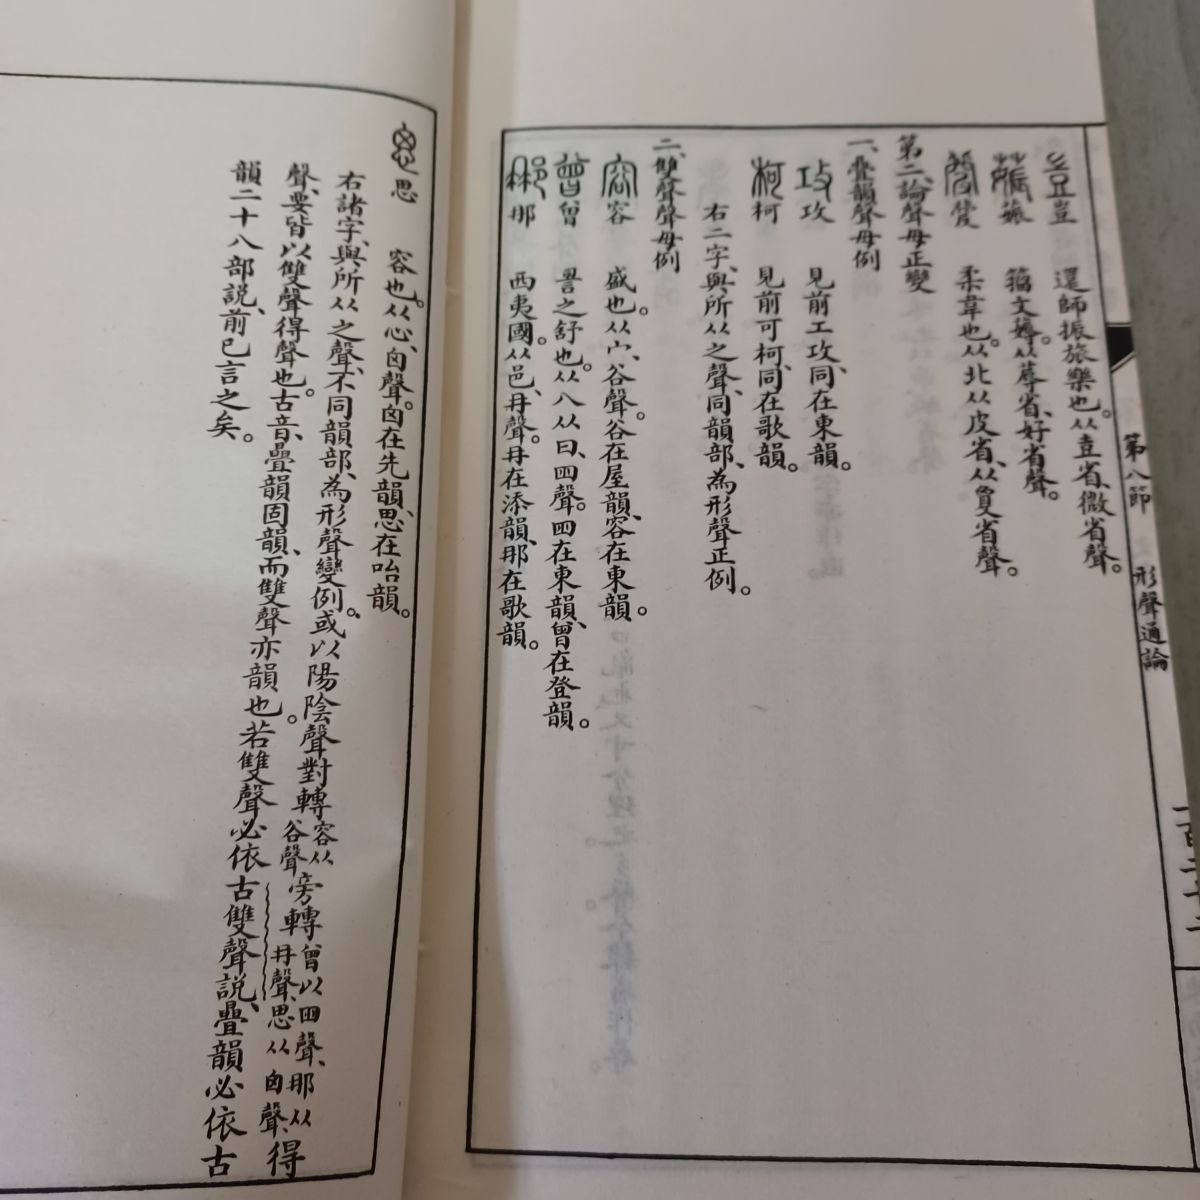 豈 還師振旅樂也。从豈省、微省聲。
薅 籀文薅。从蓐省、好省聲。
㼱 柔韋也。从北从皮省、从夐省聲。
第二、論聲母正變
一、疊韻聲母例
攻攻 見前工攻、同在東韻。
柯柯 見前可柯、同在歌韻。
右二字、與所从之聲、同韻部、為形聲正例。
二、雙聲聲母例
容容 盛也。从宀、谷聲。谷在屋韻、容在東韻。
曾曾 詈之舒也。从八从曰、囧聲。囧在東韻、曾在登韻。
那那 西夷國。从邑、冄聲。冄在添韻、那在歌韻。
第八節 形聲通論
思思 容也。从心、囟聲。囟在先韻、思在咍韻。
右諸字、與所从之聲、不同韻部、為形聲變例。或以陽陰聲對轉容从谷聲旁轉曾以囧聲、那从冄聲、思从囟聲、得
聲、要皆以雙聲得聲也。古音、疊韻固韻、而雙聲亦韻也。若雙聲必依古雙聲說、疊韻必依古
韻二十八部說、前已言之矣。